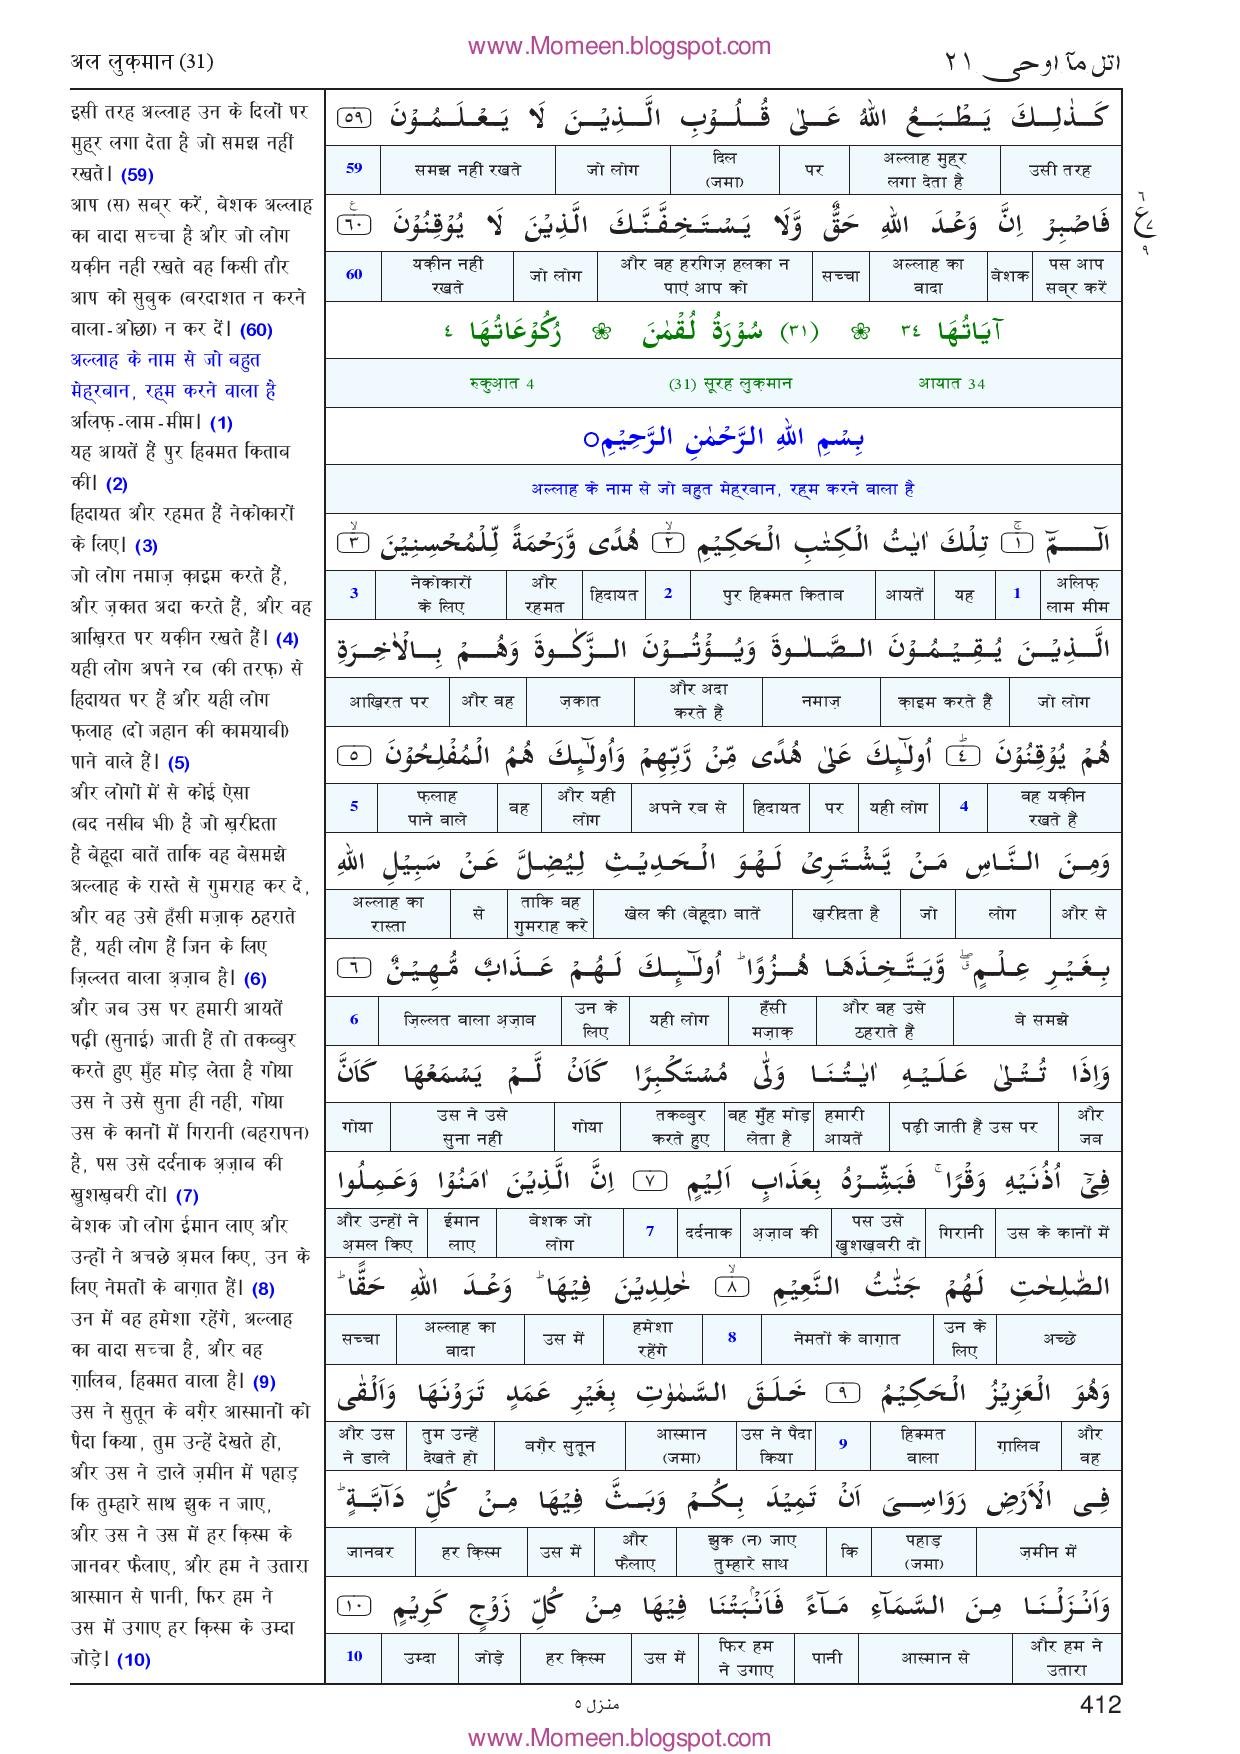 www.Momeen.blogspot.com
अल लुक़मान (31)
اتل مآ اوحی ٢١
इसी तरह अल्लाह उन के दिलों पर
मुह्र लगा देता है जो समझ नहीं
रखते। (59)
आप (स) सब्र करें, बेशक अल्लाह
का वादा सच्चा है और जो लोग
यक़ीन नहीं रखते वह किसी तौर
आप को सुबुक (बरदाशत न करने
वाला-ओछा) न कर दें। (60)
अल्लाह के नाम से जो बहुत
मेह्रबान, रह्म करने वाला है
अलिफ़-लाम-मीम। (1)
यह आयतें हैं पुर हिक्मत किताब
की। (2)
हिदायत और रहमत हैं नेकोकारों
के लिए। (3)
जो लोग नमाज़ क़ाइम करते हैं,
और ज़कात अदा करते हैं, और वह
आख़िरत पर यक़ीन रखते हैं। (4)
यही लोग अपने रब (की तरफ़) से
हिदायत पर हैं और यही लोग
फ़लाह (दो जहान की कामयाबी)
पाने वाले हैं। (5)
और लोगों में से कोई ऐसा
(बद नसीब भी) है जो ख़रीदता
है बेहूदा बातें ताकि वह बेसमझे
अल्लाह के रास्ते से गुमराह कर दे,
और वह उसे हँसी मज़ाक़ ठहराते
हैं, यही लोग हैं जिन के लिए
ज़िल्लत वाला अ़ज़ाब है। (6)
और जब उस पर हमारी आयतें
पढ़ी (सुनाई) जाती हैं तो तकब्बुर
करते हुए मुँह मोड़ लेता है गोया
उस ने उसे सुना ही नहीं, गोया
उस के कानों में गिरानी (बहरापन)
है, पस उसे दर्दनाक अ़ज़ाब की
ख़ुशख़बरी दो। (7)
बेशक जो लोग ईमान लाए और
उन्हों ने अच्छे अ़मल किए, उन के
लिए नेमतों के बाग़ात हैं। (8)
उन में वह हमेशा रहेंगे, अल्लाह
का वादा सच्चा है, और वह
ग़ालिब, हिक्मत वाला है। (9)
उस ने सुतून के बग़ैर आस्मानों को
पैदा किया, तुम उन्हें देखते हो,
और उस ने डाले ज़मीन में पहाड़
कि तुम्हारे साथ झुक न जाए,
और उस ने उस में हर क़िस्म के
जानवर फैलाए, और हम ने उतारा
आस्मान से पानी, फिर हम ने
उस में उगाए हर क़िस्म के उम्दा
जोड़े। (10)
كَذٰلِكَ يَطْبَعُ اللّٰهُ عَلٰى قُلُوْبِ الَّذِيْنَ لَا يَعْلَمُوْنَ ٥٩
उसी तरह | अल्लाह मुह्र लगा देता है | पर | दिल (जमा) | जो लोग | समझ नहीं रखते | 59
فَاصْبِرْ اِنَّ وَعْدَ اللّٰهِ حَقٌّ وَّلَا يَسْتَخِفَّنَّكَ الَّذِيْنَ لَا يُوْقِنُوْنَ ٦٠
ع ٦ ٧ ٩
पस आप सब्र करें | बेशक | अल्लाह का वादा | सच्चा | और वह हरगिज़ हलका न पाएं आप को | जो लोग | यक़ीन नहीं रखते | 60
آيَاتُهَا ٣٤ ❀ (٣١) سُوْرَةُ لُقْمٰنَ ❀ رُكُوْعَاتُهَا ٤
रुकुआ़त 4 (31) सूरह लुक़मान आयात 34
بِسْمِ اللّٰهِ الرَّحْمٰنِ الرَّحِيْمِ
अल्लाह के नाम से जो बहुत मेह्रबान, रह्म करने वाला है
الٓـمّٓ ١ تِلْكَ اٰيٰتُ الْكِتٰبِ الْحَكِيْمِ ٢ هُدًى وَّرَحْمَةً لِّلْمُحْسِنِيْنَ ٣
अलिफ़ लाम मीम | 1 | यह | आयतें | पुर हिक्मत किताब | 2 | हिदायत | और रहमत | नेकोकारों के लिए | 3
الَّذِيْنَ يُقِيْمُوْنَ الصَّلٰوةَ وَيُؤْتُوْنَ الزَّكٰوةَ وَهُمْ بِالْاٰخِرَةِ
जो लोग | क़ाइम करते हैं | नमाज़ | और अदा करते हैं | ज़कात | और वह | आख़िरत पर
هُمْ يُوْقِنُوْنَ ٤ اُولٰٓئِكَ عَلٰى هُدًى مِّنْ رَّبِّهِمْ وَاُولٰٓئِكَ هُمُ الْمُفْلِحُوْنَ ٥
वह यक़ीन रखते हैं | 4 | यही लोग | पर | हिदायत | अपने रब से | और यही लोग | वह | फ़लाह पाने वाले | 5
وَمِنَ النَّاسِ مَنْ يَّشْتَرِىْ لَهْوَ الْحَدِيْثِ لِيُضِلَّ عَنْ سَبِيْلِ اللّٰهِ
और से | लोग | जो | ख़रीदता है | खेल की (बेहूदा) बातें | ताकि वह गुमराह करे | से | अल्लाह का रास्ता
بِغَيْرِ عِلْمٍ ۖ وَّيَتَّخِذَهَا هُزُوًا ؕ اُولٰٓئِكَ لَهُمْ عَذَابٌ مُّهِيْنٌ ٦
बे समझे | और वह उसे ठहराते हैं | हँसी मज़ाक़ | यही लोग | उन के लिए | ज़िल्लत वाला अ़ज़ाब | 6
وَاِذَا تُتْلٰى عَلَيْهِ اٰيٰتُنَا وَلّٰى مُسْتَكْبِرًا كَاَنْ لَّمْ يَسْمَعْهَا كَاَنَّ
और जब | पढ़ी जाती हैं उस पर | हमारी आयतें | वह मुँह मोड़ लेता है | तकब्बुर करते हुए | गोया | उस ने उसे सुना नहीं | गोया
فِىْٓ اُذُنَيْهِ وَقْرًا ۚ فَبَشِّرْهُ بِعَذَابٍ اَلِيْمٍ ٧ اِنَّ الَّذِيْنَ اٰمَنُوْا وَعَمِلُوا
उस के कानों में | गिरानी | पस उसे ख़ुशख़बरी दो | अ़ज़ाब की | दर्दनाक | 7 | बेशक जो लोग | ईमान लाए | और उन्हों ने अ़मल किए
الصّٰلِحٰتِ لَهُمْ جَنّٰتُ النَّعِيْمِ ٨ خٰلِدِيْنَ فِيْهَا ؕ وَعْدَ اللّٰهِ حَقًّا ؕ
अच्छे | उन के लिए | नेमतों के बाग़ात | 8 | हमेशा रहेंगे | उस में | अल्लाह का वादा | सच्चा
وَهُوَ الْعَزِيْزُ الْحَكِيْمُ ٩ خَلَقَ السَّمٰوٰتِ بِغَيْرِ عَمَدٍ تَرَوْنَهَا وَاَلْقٰى
और वह | ग़ालिब | हिक्मत वाला | 9 | उस ने पैदा किया | आस्मान (जमा) | बग़ैर सुतून | तुम उन्हें देखते हो | और उस ने डाले
فِى الْاَرْضِ رَوَاسِىَ اَنْ تَمِيْدَ بِكُمْ وَبَثَّ فِيْهَا مِنْ كُلِّ دَآبَّةٍ ؕ
ज़मीन में | पहाड़ (जमा) | कि | झुक (न) जाए तुम्हारे साथ | और फैलाए | उस में | हर क़िस्म | जानवर
وَاَنْزَلْنَا مِنَ السَّمَآءِ مَآءً فَاَنْۢبَتْنَا فِيْهَا مِنْ كُلِّ زَوْجٍ كَرِيْمٍ ١٠
और हम ने उतारा | आस्मान से | पानी | फिर हम ने उगाए | उस में | हर क़िस्म | जोड़े | उम्दा | 10
منزل ٥
412
www.Momeen.blogspot.com